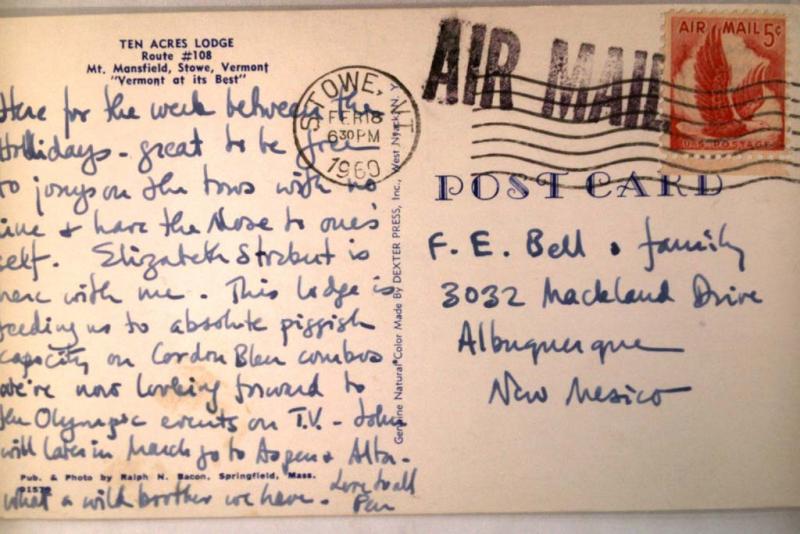 TEN ACRES LODGE
Route #108
Mt. Mansfield, Stowe, Vermont
"Vermont at its Best"
Here for the week between the
Hollidays - great to be free
to on the tows with no
line & have the to one's
self. Elizabeth is
here with me. This lodge is
feeding us to absolute piggish
capacity on Cordon Bleu combos
We're now looking forward to
the Olympic events on T.V. - John
will later in March go to Aspen & Alta -
what a wild brother we have. Love to all
Pub. & Photo by Ralph N. Bacon, Springfield, Mass.
Genuine Natural Color Made By DEXTER PRESS, Inc., West Nyack, N. Y.
STOWE, VT
FEB 18
630 PM
1960
AIR MAIL
AIR MAIL 5¢
U.S. POSTAGE
POST CARD
F. E. Bell & family
3032 Mackland Drive
Albuquerque
New Mexico